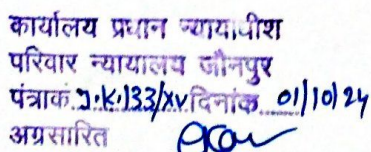 कार्यालय प्रधान न्यायाधीश
परिवार न्यायालय जौनपुर
पत्रांक J.K.133/XV दिनांक 01/10/24
अग्रसारित